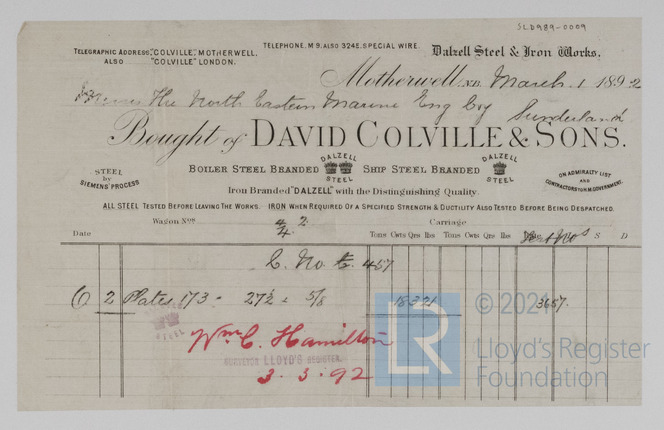 SLD989-0009
TELEGRAPHIC ADDRESS, "COLVILLE", MOTHERWELL.
ALSO "COLVILLE" LONDON.
TELEPHONE. M9. ALSO 324E. SPECIAL WIRE.
Dalzell Steel & Iron Works,
Motherwell, N.B. March 1 1892
The North Eastern Marine Eng Coy Sunderland
Bought of DAVID COLVILLE & SONS.
STEEL by SIEMENS' PROCESS
BOILER STEEL BRANDED DALZELL STEEL SHIP STEEL BRANDED DALZELL STEEL
ON ADMIRALTY LIST AND CONTRACTORS FOR H.M. GOVERNMENT.
Iron Branded "DALZELL" with the Distinguishing Quality.
ALL STEEL TESTED BEFORE LEAVING THE WORKS. IRON WHEN REQUIRED OF A SPECIFIED STRENGTH & DUCTILITY ALSO TESTED BEFORE BEING DESPATCHED.
Wagon Nos 2/4 2 Carriage
Date Tons Cwts Qrs lbs Tons Cwts Qrs lbs Test Nos S D
C. No 457
6 2 Plates 173 - 27½ - 5/8 18 3 21 3657.
STEEL
Wm C. Hamilton
SURVEYOR LLOYD'S REGISTER.
3. 3. 92
LR
© 2021
Lloyd's Register
Foundation